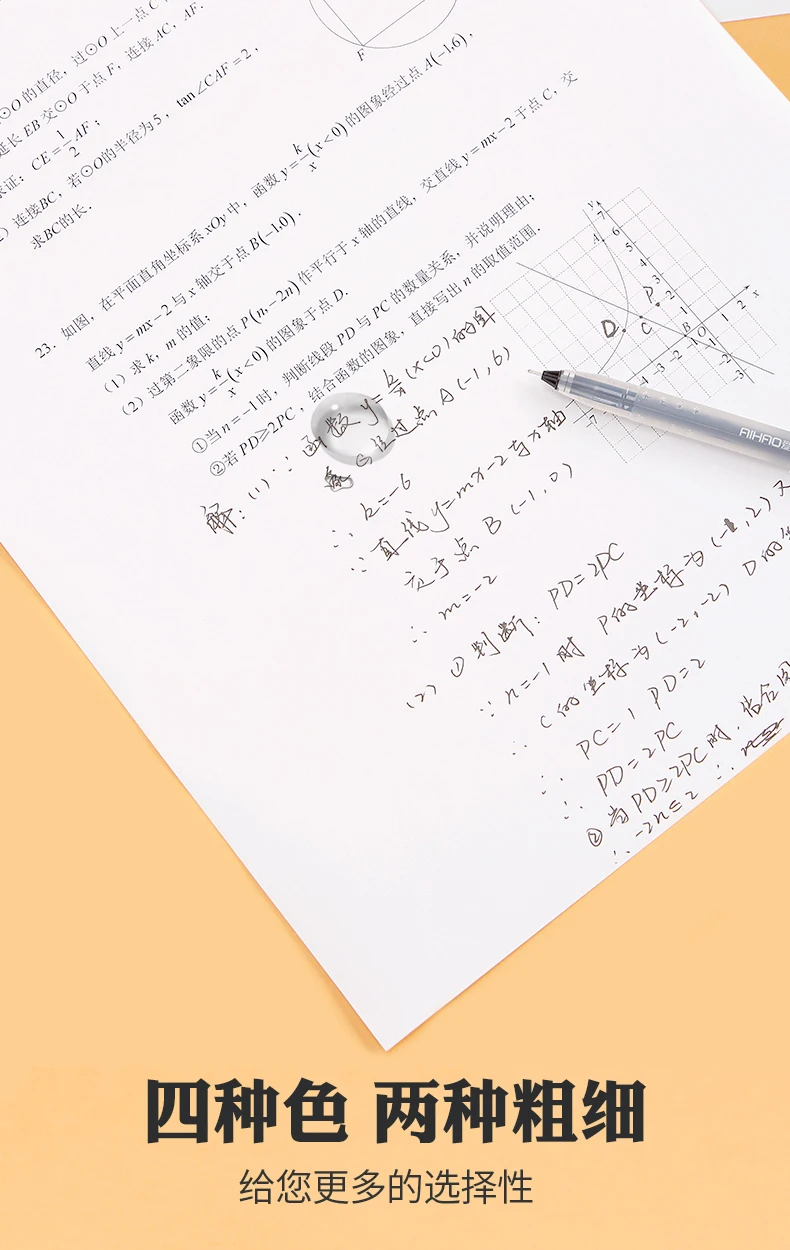 ⊙O的直径，过⊙O上一点C
延长EB交⊙O于点F，连接AC，AF.
求证：CE=1/2AF；
）连接BC，若⊙O的半径为5，tan∠CAF=2，
求BC的长.
F
23．如图，在平面直角坐标系xOy中，函数y=k/x(x<0)的图象经过点A(-1,6)，
直线y=mx-2与x轴交于点B(-1,0).
（1）求k，m的值；
（2）过第二象限的点P(n,-2n)作平行于x轴的直线，交直线y=mx-2于点C，交
函数y=k/x(x<0)的图象于点D.
①当n=-1时，判断线段PD与PC的数量关系，并说明理由；
②若PD≥2PC，结合函数的图象，直接写出n的取值范围.
解：(1)∵函数y=k/x(x<0)的图
经过点A(-1,6)
∴k=-6
∵直线y=mx-2与x轴
交于点B(-1,0)
∴m=-2
(2)①判断：PD=2PC
∵n=-1时 P的坐标为(-1,2)又
∴C的坐标为(-2,-2) D的坐
∴PC=1 PD=2
∴PD=2PC
②当PD≥2PC时，结合图
∴-2n≤2 ∴
AIHAO
四种色 两种粗细
给您更多的选择性